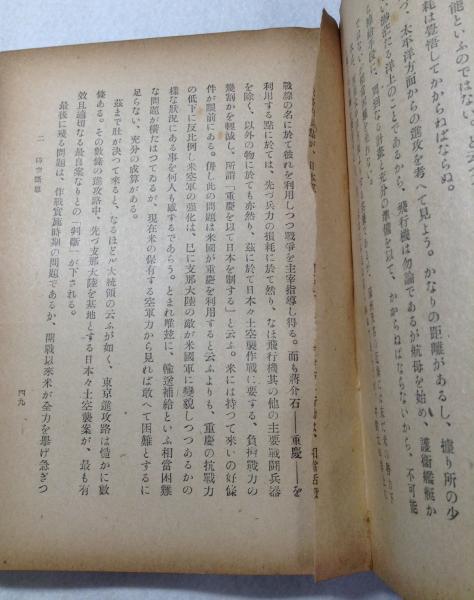 能といふのではない。
耗は覺悟してかからねばならぬ。
太平洋方面からの進攻を考へて見よう。かなりの距離があるし、據り所の少
洋上のことであるから、飛行機は勿論であるが航母を始め、護衛艦艇か
充分の準備を以て、かからねばならないから、不可能
戰線の名に於て彼れを利用しつつ戰爭を主宰指導し得る。而も蔣介石――重慶――を
利用する點に於ては、先づ兵力の損耗に於て然り、なほ飛行機其の他の主要戰鬪兵器
を除く、以外の物に於ても亦然り、茲に於て日本々土空襲作戰に要する、負擔戰力の
幾割かを輕減し、所謂「重慶を以て日本を制する」と云ふ。米には持つて來いの好條
件が眼前にある。併し此の問題は米國が重慶を利用すると云ふよりも、重慶の抗戰力
の低下に反比例し米空軍の強化は、已に支那大陸の敵が米國軍に變貌しつつあるかの
樣な狀況にある事を何人も感ずるであらう。ともあれ唯茲に、輸送補給といふ相當困難
な問題が橫たはつてゐるが、現在米の保有する空軍力から見れば敢へて困難とするに
足らない、充分の成算がある。
茲まで肚が決つて來ると、なるほどル大統領の云ふが如く、東京進攻路は慥かに數
條ある。その數條の進攻路中、先づ支那大陸を基地とする日本々土空襲案が、最も有
效且適切なる最良案なりとの「判斷」が下される。
最後に殘る問題は、作戰實施時期の問題であるか、開戰以來米が全力を擧げ急ぎつ
二 時空
四九